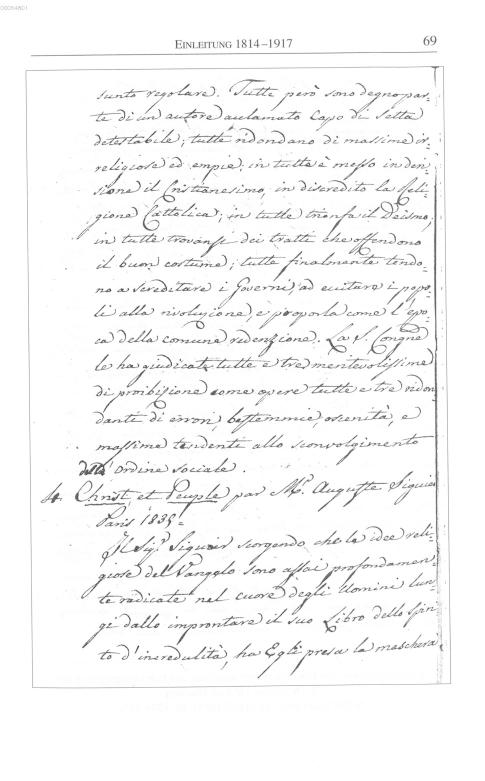 00034801
EINLEITUNG 1814–1917
69
sunto regolare. Tutte però sono degno par-
te di un autore aclamato Capo di Setta
detestabile; tutte ridondano di massime ir-
religiose ed empie; in tutte è messo in deri-
sione il Cristianesimo, in discredito la Reli-
gione Cattolica; in tutte trionfa il Deismo;
in tutte trovansi dei tratti che offendono
il buon costume; tutte finalmente tendo-
no a screditare i Governi, ad eccitare i popo-
li alla rivoluzione, e proposta come l'epo-
ca della comune redenzione. La S. Congne
le ha giudicate tutte e tre meritevolissime
di proibizione come opere tutte e tre ridon-
danti di errori, bestemmie, oscenità, e
massime tendenti allo sconvolgimento
dell'ordine sociale.
4. Christ et Peuple par Mr. Auguste Siguier
Paris 1835=
Il Sigr. Siguier scorgendo che le idee reli-
giose del Vangelo sono assai profondamen-
te radicate nel cuore degli Uomini lun-
gi dallo improntare il suo Libro dello Spiri-
to d'incredulità, ha Egli presa la maschera